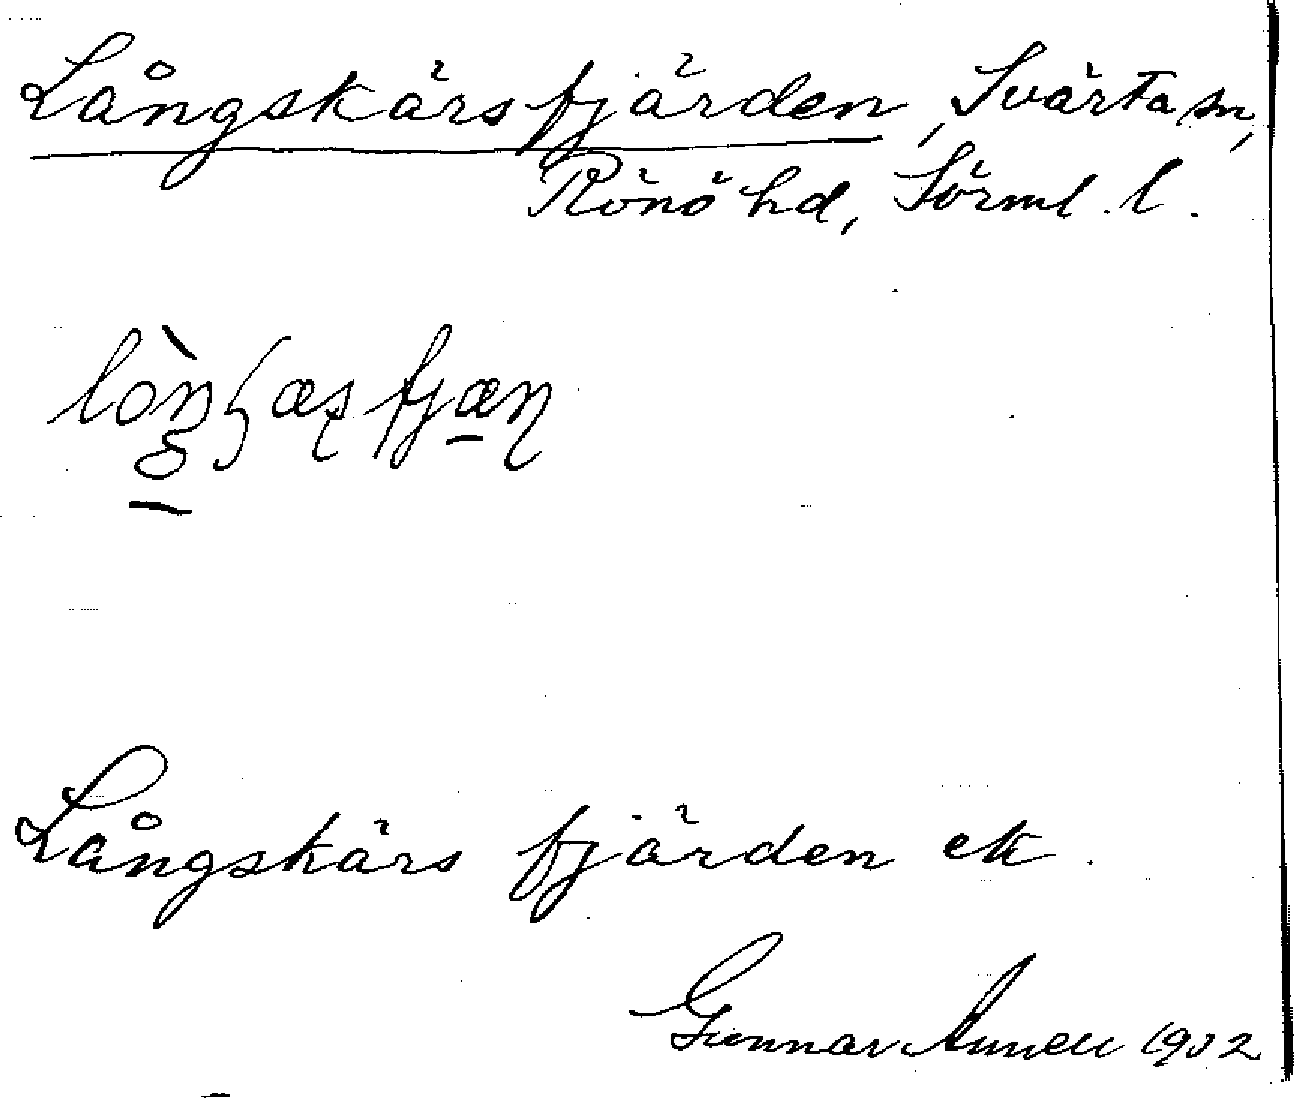 Långskärsfjärden, Svärta sn,
Rönö hd, Sörml. l.
Långskärs fjärden ek.
Gunnar Annell 1932